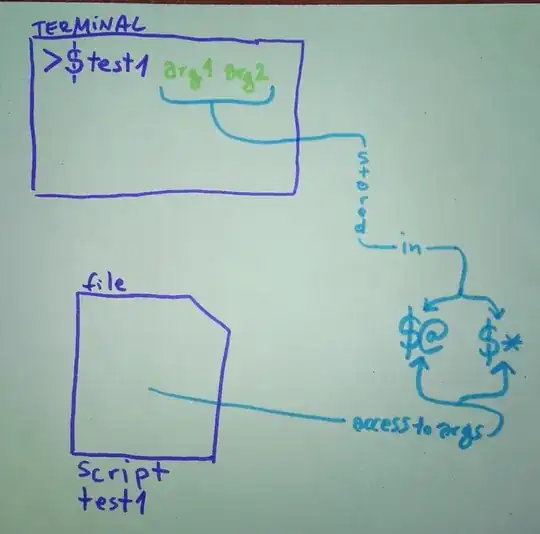 TERMINAL
>$ test1 arg1 arg2
stored
in
$@ $*
file
access to args
script
test1